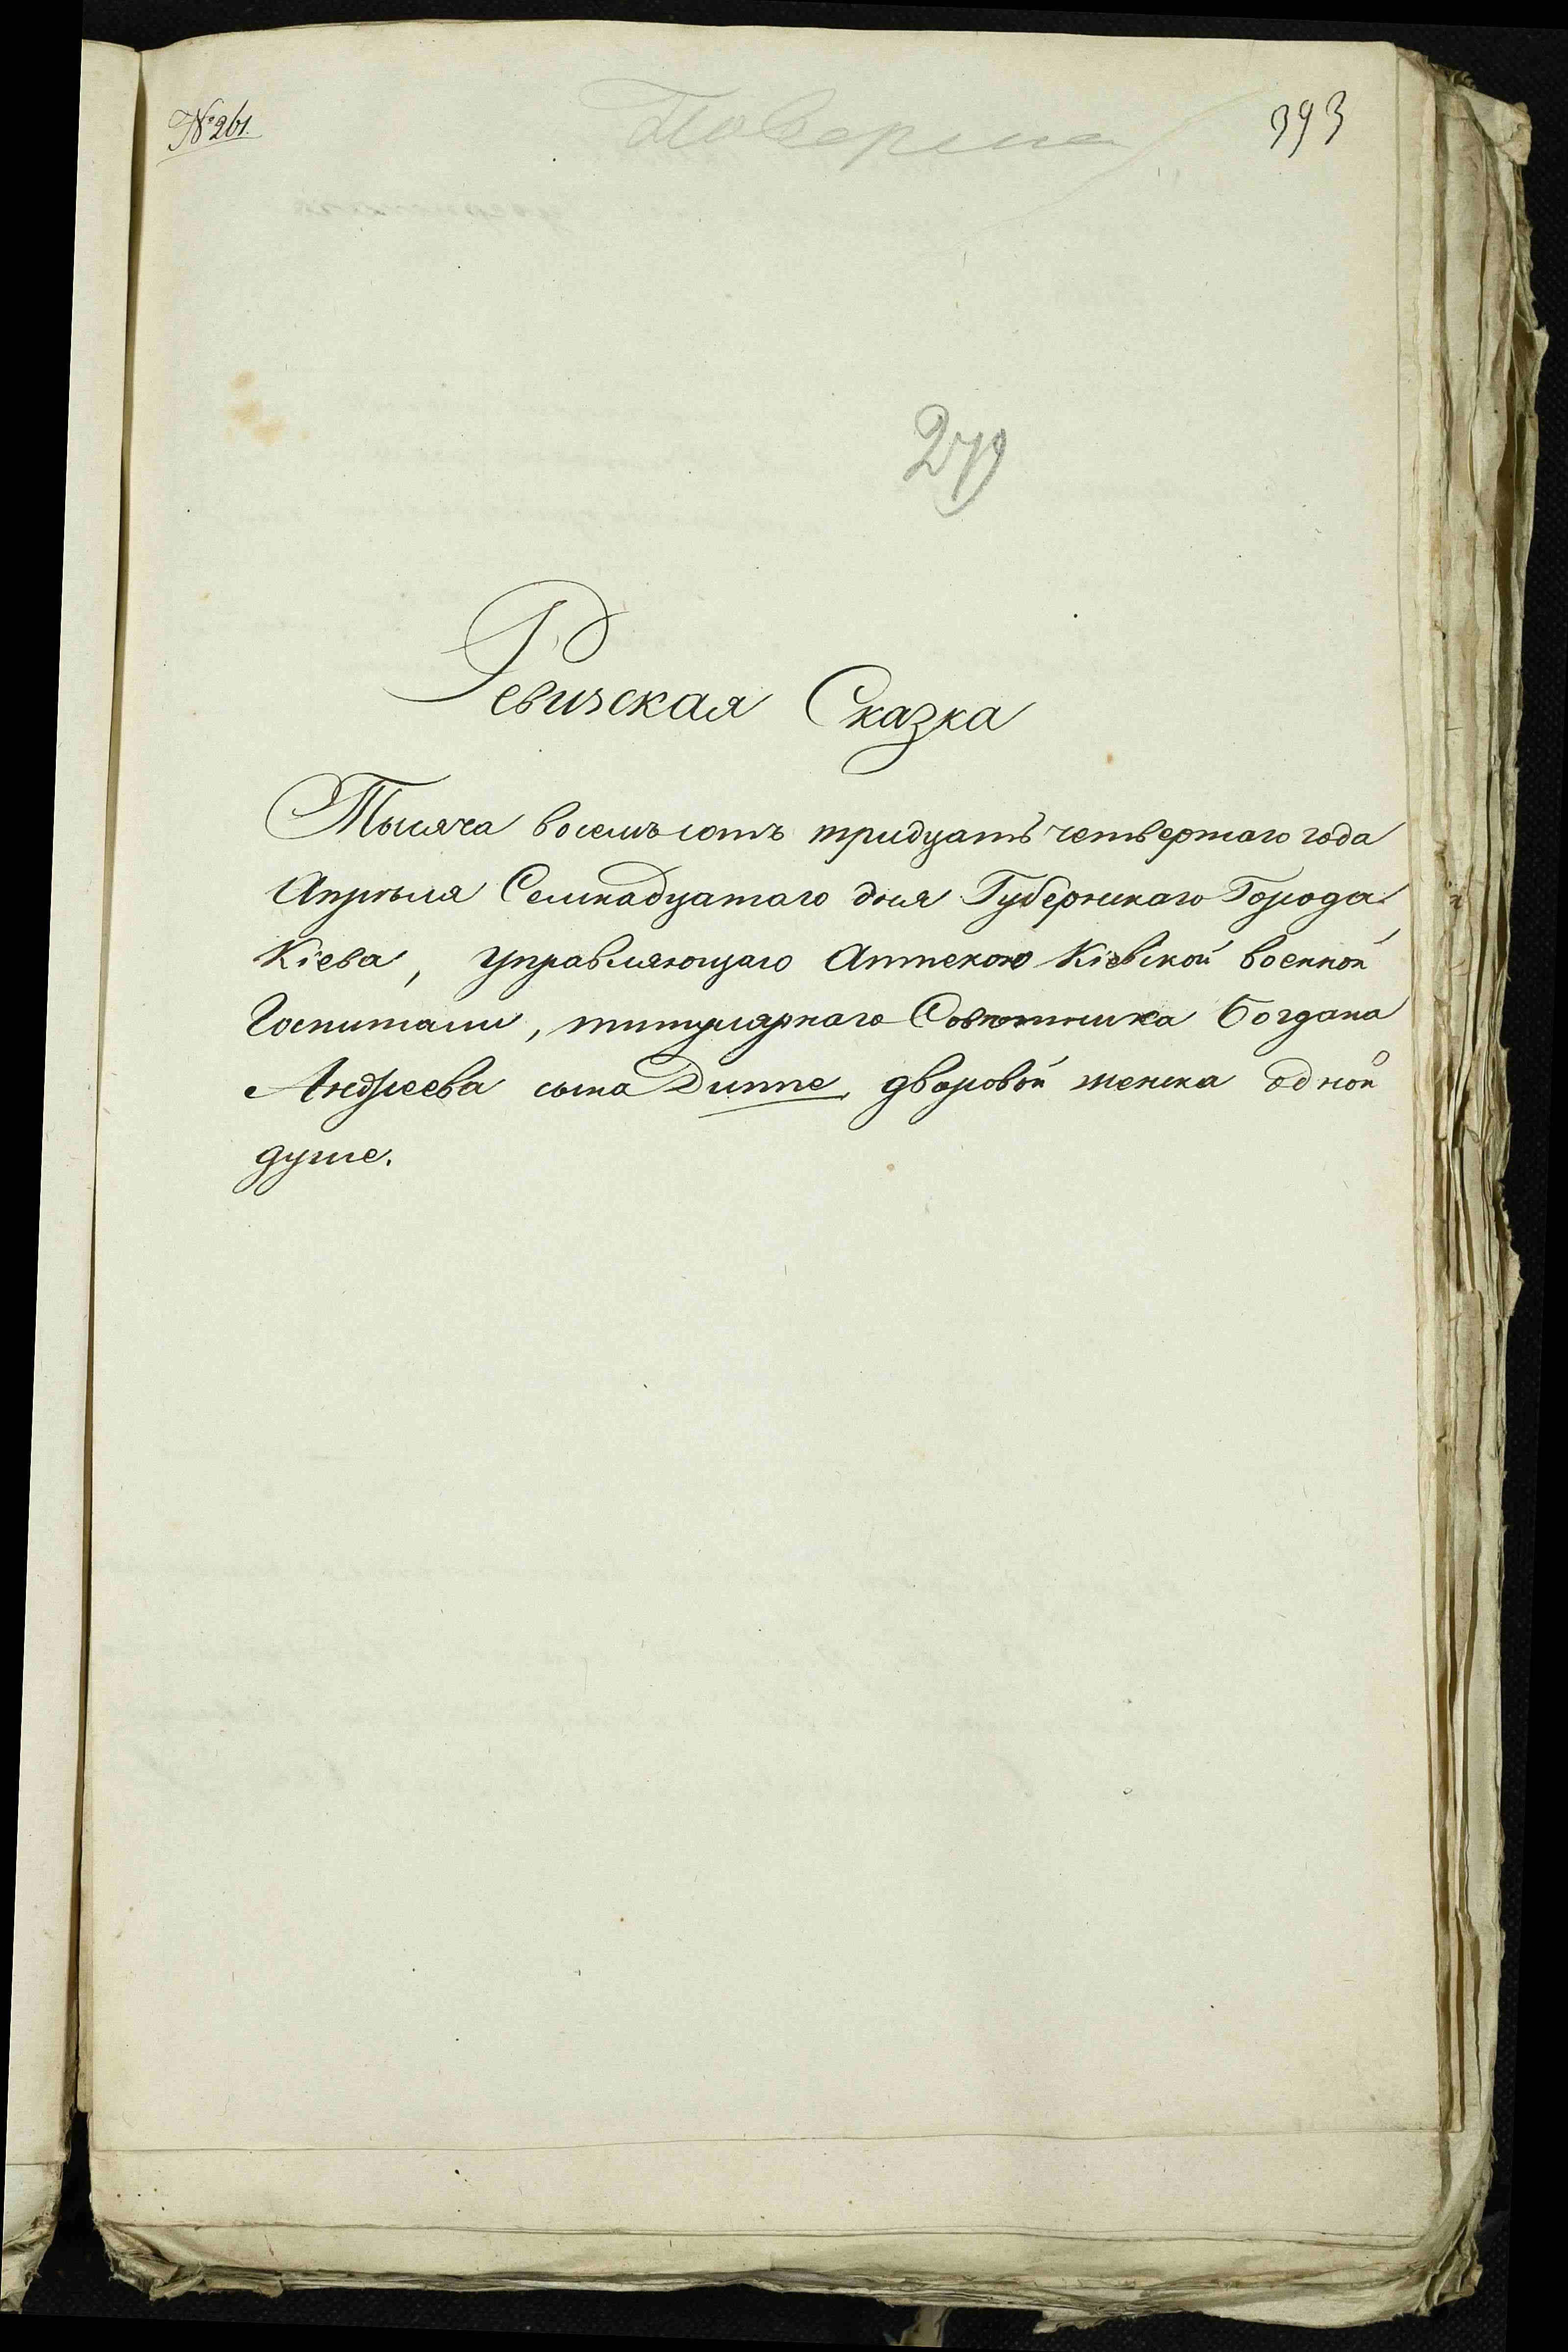 № 261.
Поверена
393
279
Ревизская Сказка
Тысяча восемъ сотъ тридцать четвертаго года
Апрѣля Семнадцатаго дня Губернскаго Города
Кіева, управляющаго Аптекою Кіевской военной
Госпитали, титулярнаго Совѣтника Богдана
Андреева сына Дитте, дворовой женска одной
душе.